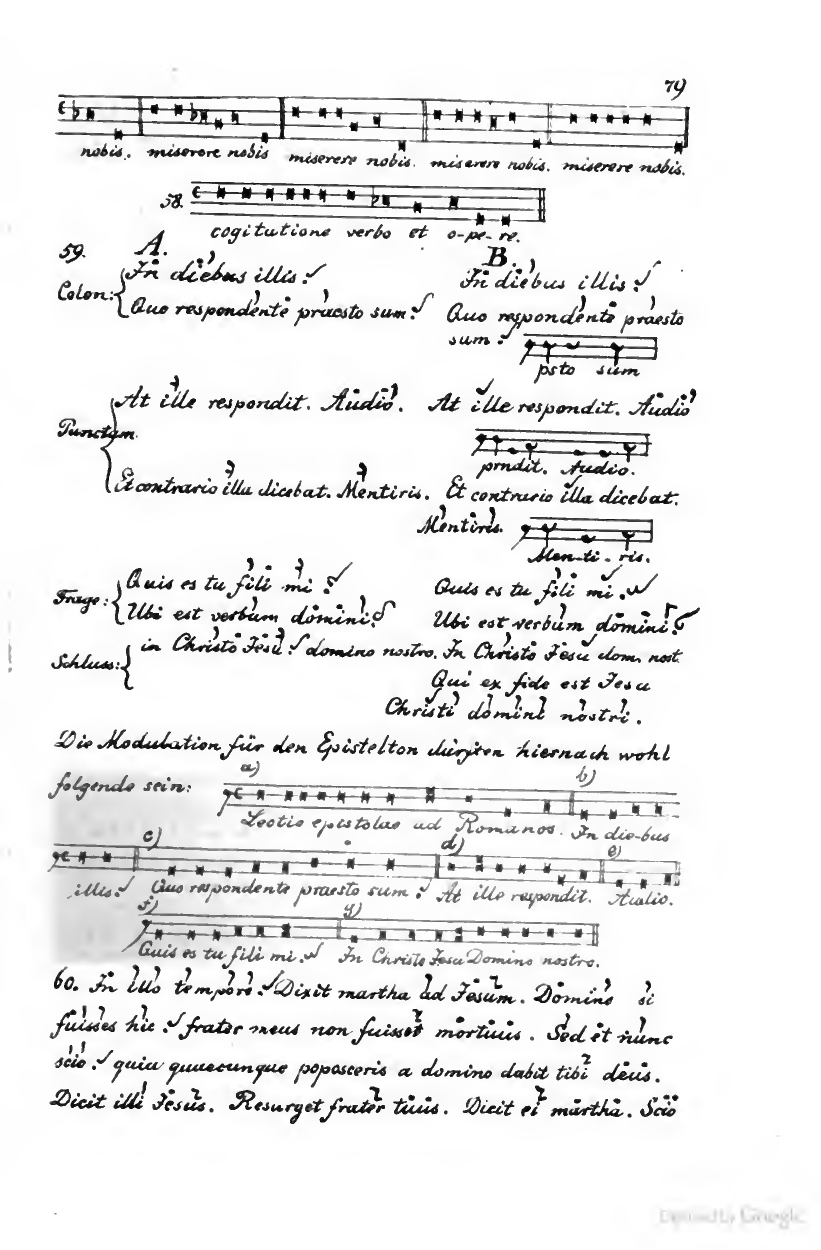 79
nobis. miserere nobis miserere nobis. miserere nobis. miserere nobis.
58.
cogitatione verbo et o-pe-re.
59. A. B.
Colon: In diebus illis: In diebus illis:
Quo respondente praesto sum: Quo respondente praesto
sum:
psto sum
Punctum. At ille respondit. Audio. At ille respondit. Audio
prndit. Audio.
Et contrario illa dicebat. Mentiris. Et contrario illa dicebat.
Mentiris.
Men-ti-ris.
Frage: Quis es tu fili mi? Quis es tu fili mi.
Ubi est verbum domini? Ubi est verbum domini?
Schluss: in Christo Jesu: domino nostro. In Christo Jesu dom. nost.
Qui ex fide est Jesu
Christi domini nostri.
Die Modulation für den Epistelton dürften hiernach wohl
folgende sein: a) b)
Lectio epistolae ad Romanos. In die-bus
c) d) e)
illis: Quo respondente praesto sum: At ille respondit. Audio.
f) g)
Quis es tu fili mi. In Christo Jesu Domino nostro.
60. In illo tempore: Dixit martha ad Jesum. Domine si
fuisses hic: frater meus non fuisset mortuus. Sed et nunc
scio: quia quaecunque poposceris a domino dabit tibi deus.
Dicit illi Jesus. Resurget frater tuus. Dicit ei martha. Scio
Digitized by Google